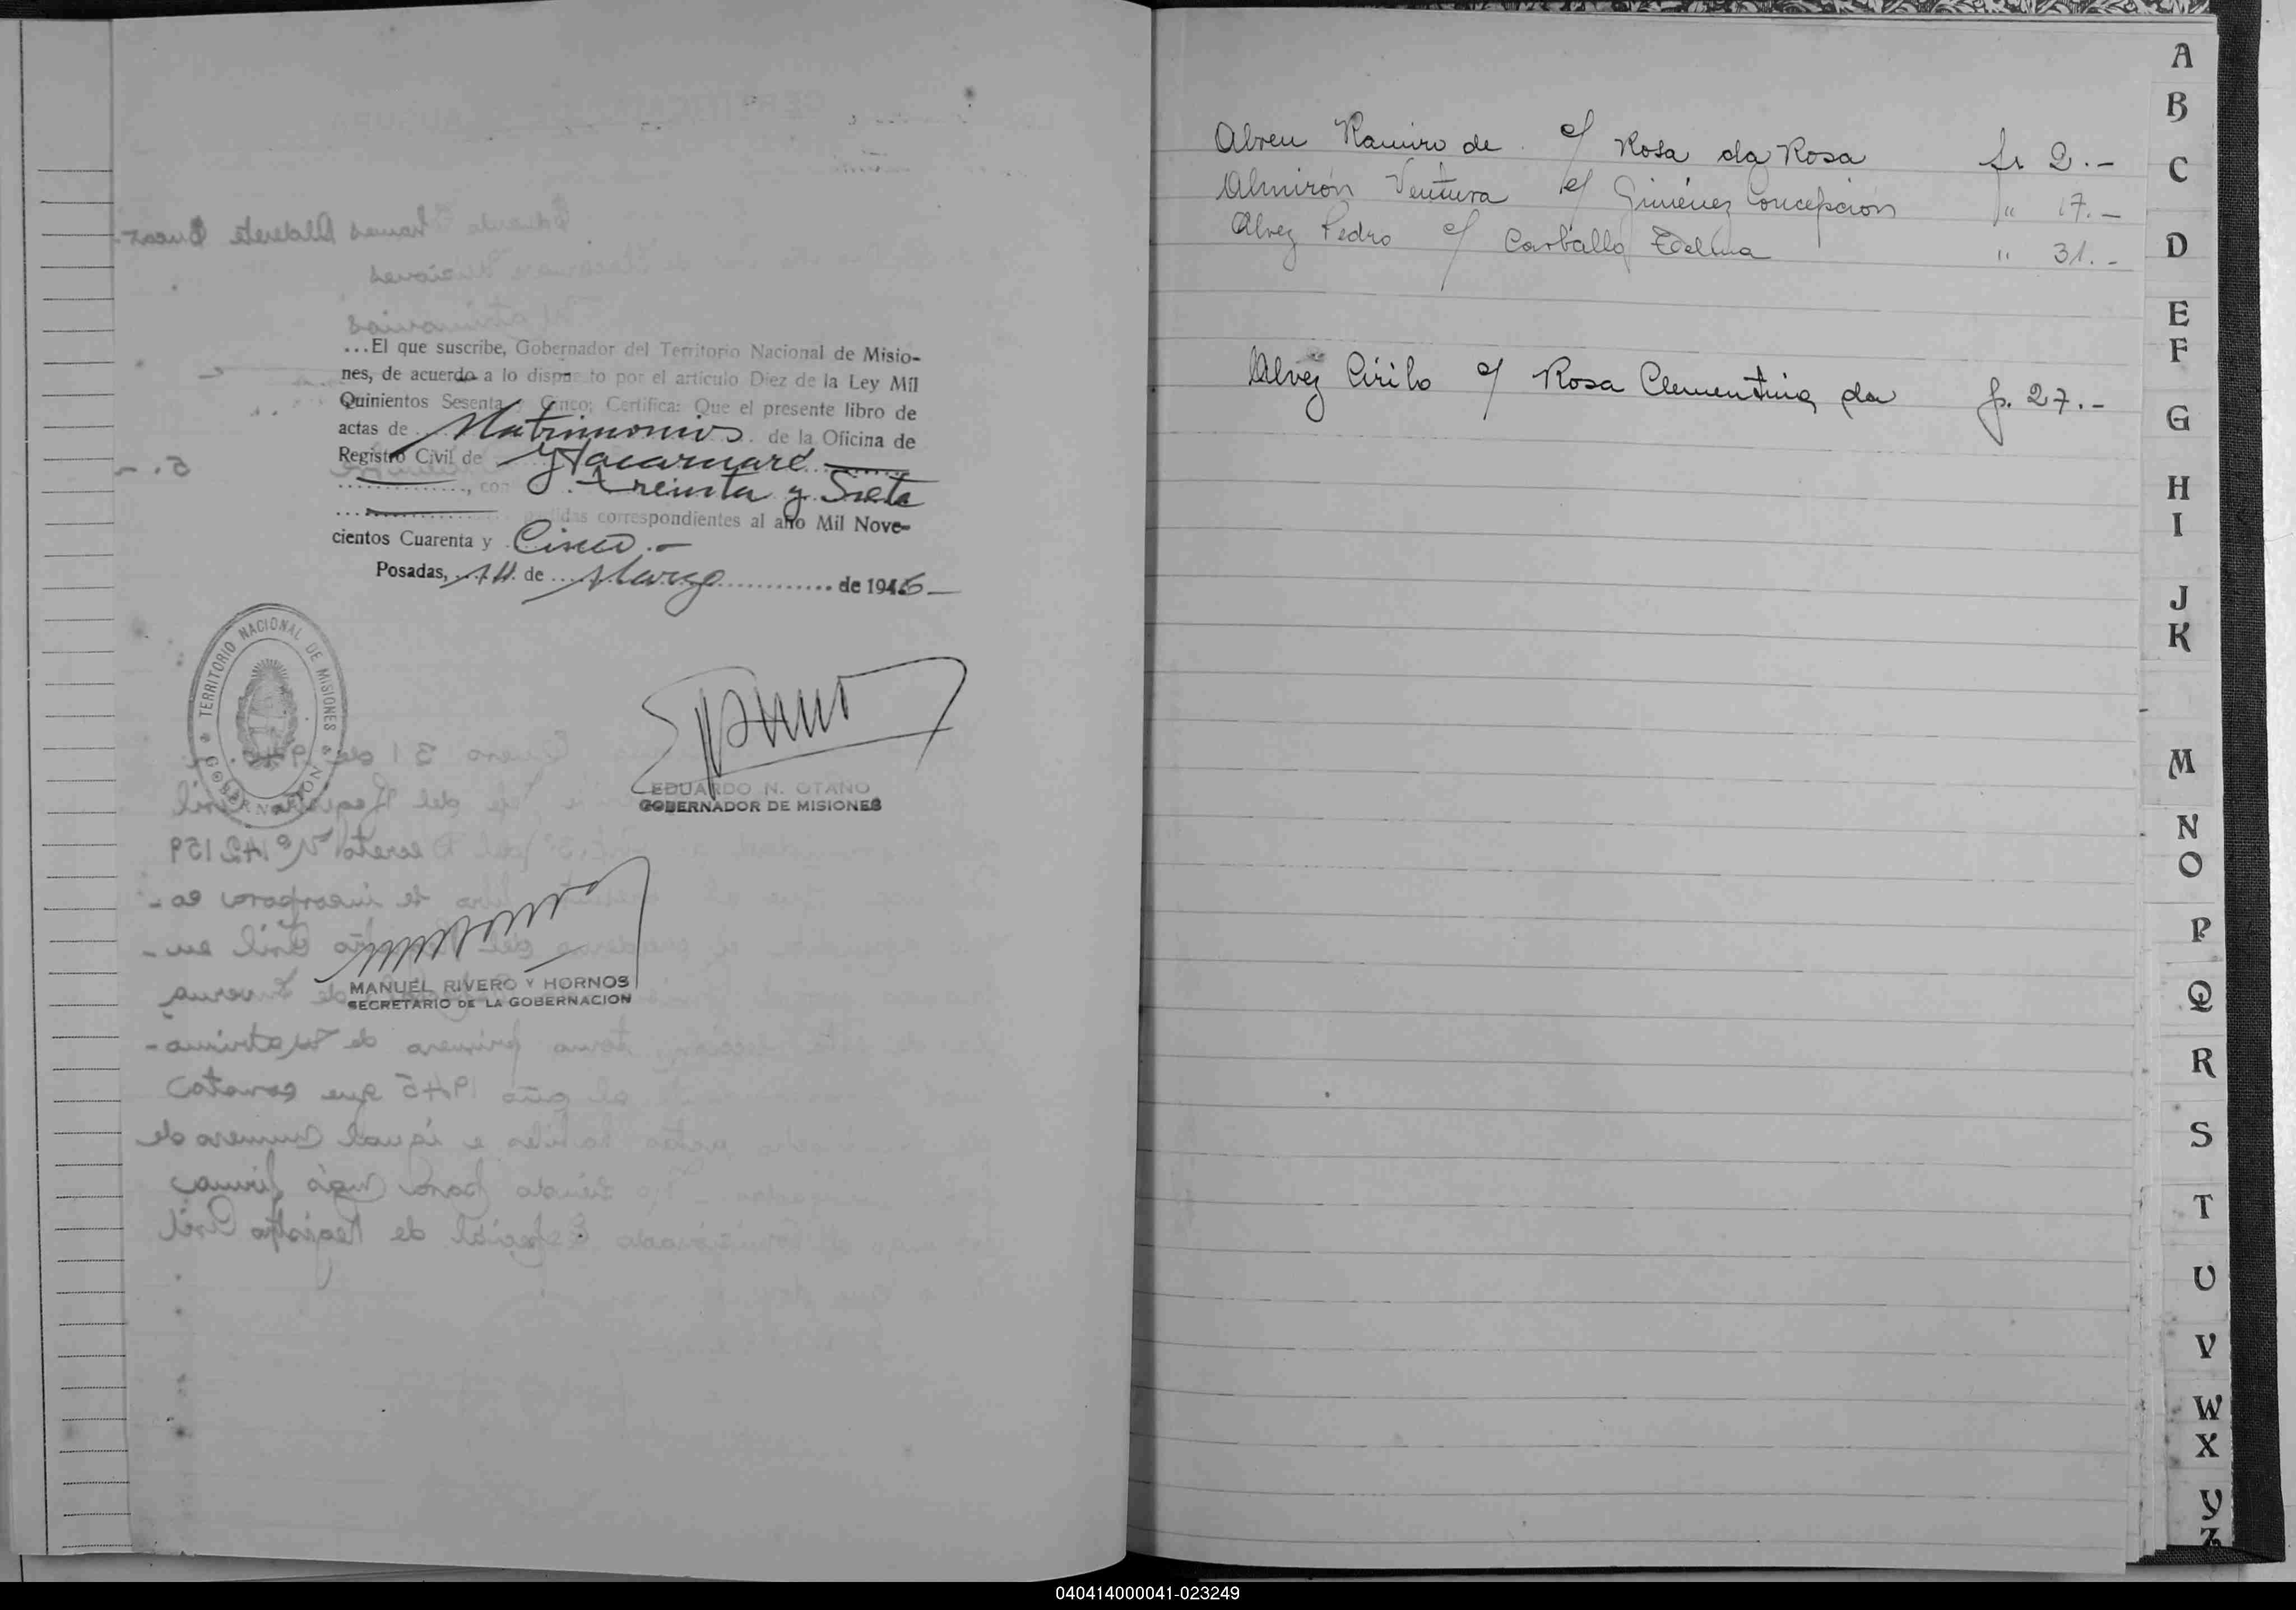 ...El que suscribe, Gobernador del Territorio Nacional de Misio-
nes, de acuerdo a lo dispuesto por el artículo Diez de la Ley Mil
Quinientos Sesenta y Cinco; Certifica: Que el presente libro de
actas de Matrimonios de la Oficina de
Registro Civil de Ytacaruaré
, con Treinta y Siete
partidas correspondientes al año Mil Nove-
cientos Cuarenta y Cinco.-
Posadas, 14 de Marzo de 1946
TERRITORIO NACIONAL DE MISIONES
GOBERNACION
EDUARDO N. OTAÑO
GOBERNADOR DE MISIONES
MANUEL RIVERO Y HORNOS
SECRETARIO DE LA GOBERNACION
Abreu Ramiro de c/ Rosa da Rosa 2.-
Almirón Ventura c/ Giménez Concepción " 17.-
Alvez Pedro c/ Carballo Edelma " 31.-
Alvez Cirilo c/ Rosa Clementina da f. 27.-
A
B
C
D
E
F
G
H
I
J
K
M
N
O
P
Q
R
S
T
U
V
W
X
Y
Z
040414000041-023249